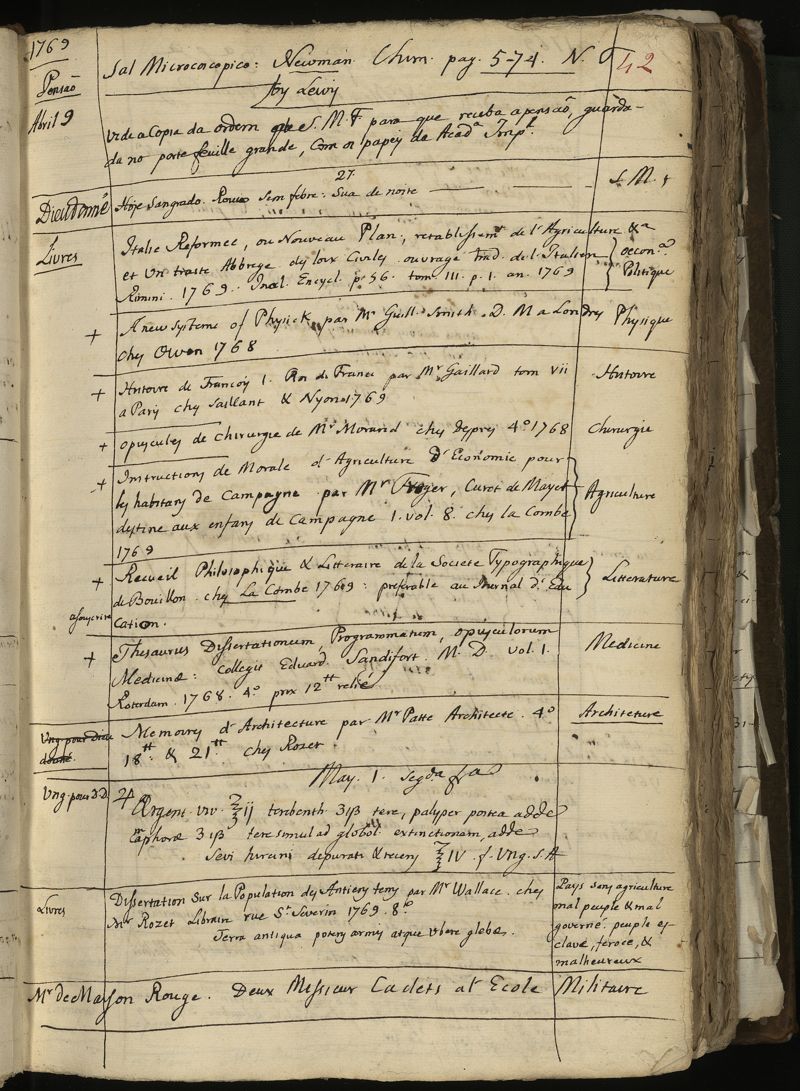 1769
Sal Microcoscopico: Newman Chim. pag. 574. N.
42
by Lewis
Pensaõ
Abril 9
vide a Copia da ordem que S. M. F para que receba a pensaõ, guarda-
da no porte feuille grande, Com os papeis da Acad.a Imp.l
27.
Dieudonné
Hoje sangrado. Rouco sem febre: Sua de noite
S. M. F
Livres
Italie Reformée, ou Nouveau Plan, retablissemt de l'Agriculture &a
et Un traite Abbregé des loix Civiles ouvrage trad. de l'Italien
Rimini. 1769. Encycl. p. 56. tom. III. p. 1. an. 1769
oecon.a
Politique
+ A new systeme of Physick par Mr Guill. Smith. D. M a Londres
chez Owen 1768
Physique
+ Histoire de François 1. Roi de France par Mr Gaillard tom VII
a Paris chez Saillant & Nyon 1769
Histoire
+ opuscules de chirurgie de Mr Morand chez Desprez 4o 1768
Chirurgie
+ Instructions de Morale d'Agriculture & d'Economie pour
les habitans de Campagne par Mr Froger, Curé de Mayet
destiné aux enfans de Campagne 1. vol. 8. chez la Combe
1769
Agriculture
+ Recueil Philosophique & Litteraire de la Societe Typographique
de Bouillon. chez La Combe 1769: preferable au Journal d'Edu
cation.
Litterature
a souscrire
+ Thesaurus Dissertationum, Programmatum, opusculorum
Medicinæ: Collegit Eduard. Sandifort. M. D. vol. 1.
Roterdam. 1768. 4o prix 12tt relié
Medicine
Ung pour Dieu
donné
Memoires d'Architecture par Mr Patte Architecte. 4o
18tt & 21tt chez Rozet
Architeture
May. 1. Segda fra
Ung pour D.D.
♃ Argent. viv. ℥ij terebenth ʒiß tere, palyper postea adde
Camphoræ ʒiß tere simul ad globol. extinctionem, adde
Sevi hircini depurati & recens ℥IV. f. Ung. S. A
Livres
Dissertation sur la Population des Antiens tems par Mr Wallace. chez
Mr Rozet Libraire rue St Severin 1769. 8o
Terra antiqua potens armis atque ubere glebæ.
Pays sans agriculture
mal peuple & mal
governé. peuple es-
clave, feroce, &
malheureux
Mr de Maison Rouge. Deux Messieur Cadets at Ecole Militaire